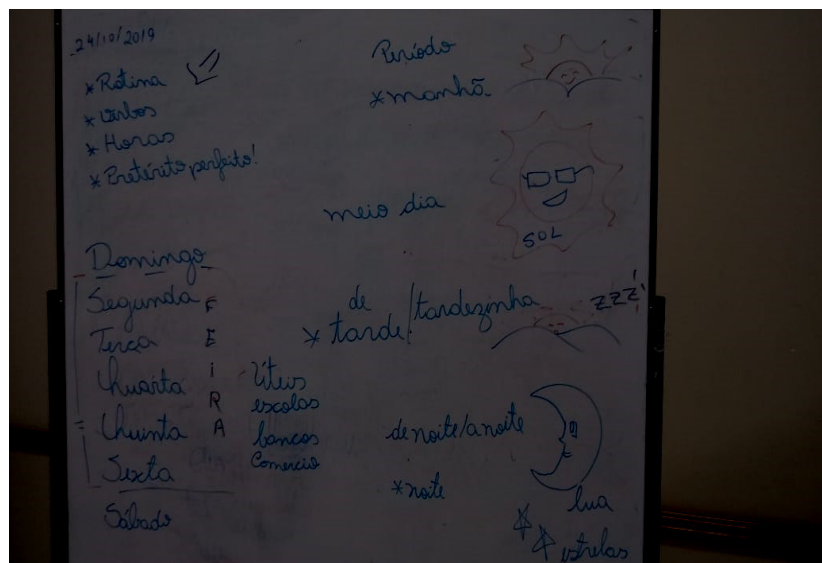 24/10/2019
* Rotina
* Verbos
* Horas
* Pretérito perfeito!
Domingo
Segunda
Terça
Quarta
Quinta
Sexta
Sábado
FEIRA
Úteis
escolas
bancos
Comércio
Período
* manhã
meio dia
SOL
de
* tarde/tardezinha
zzz!
de noite/a noite
* noite
lua
estrelas